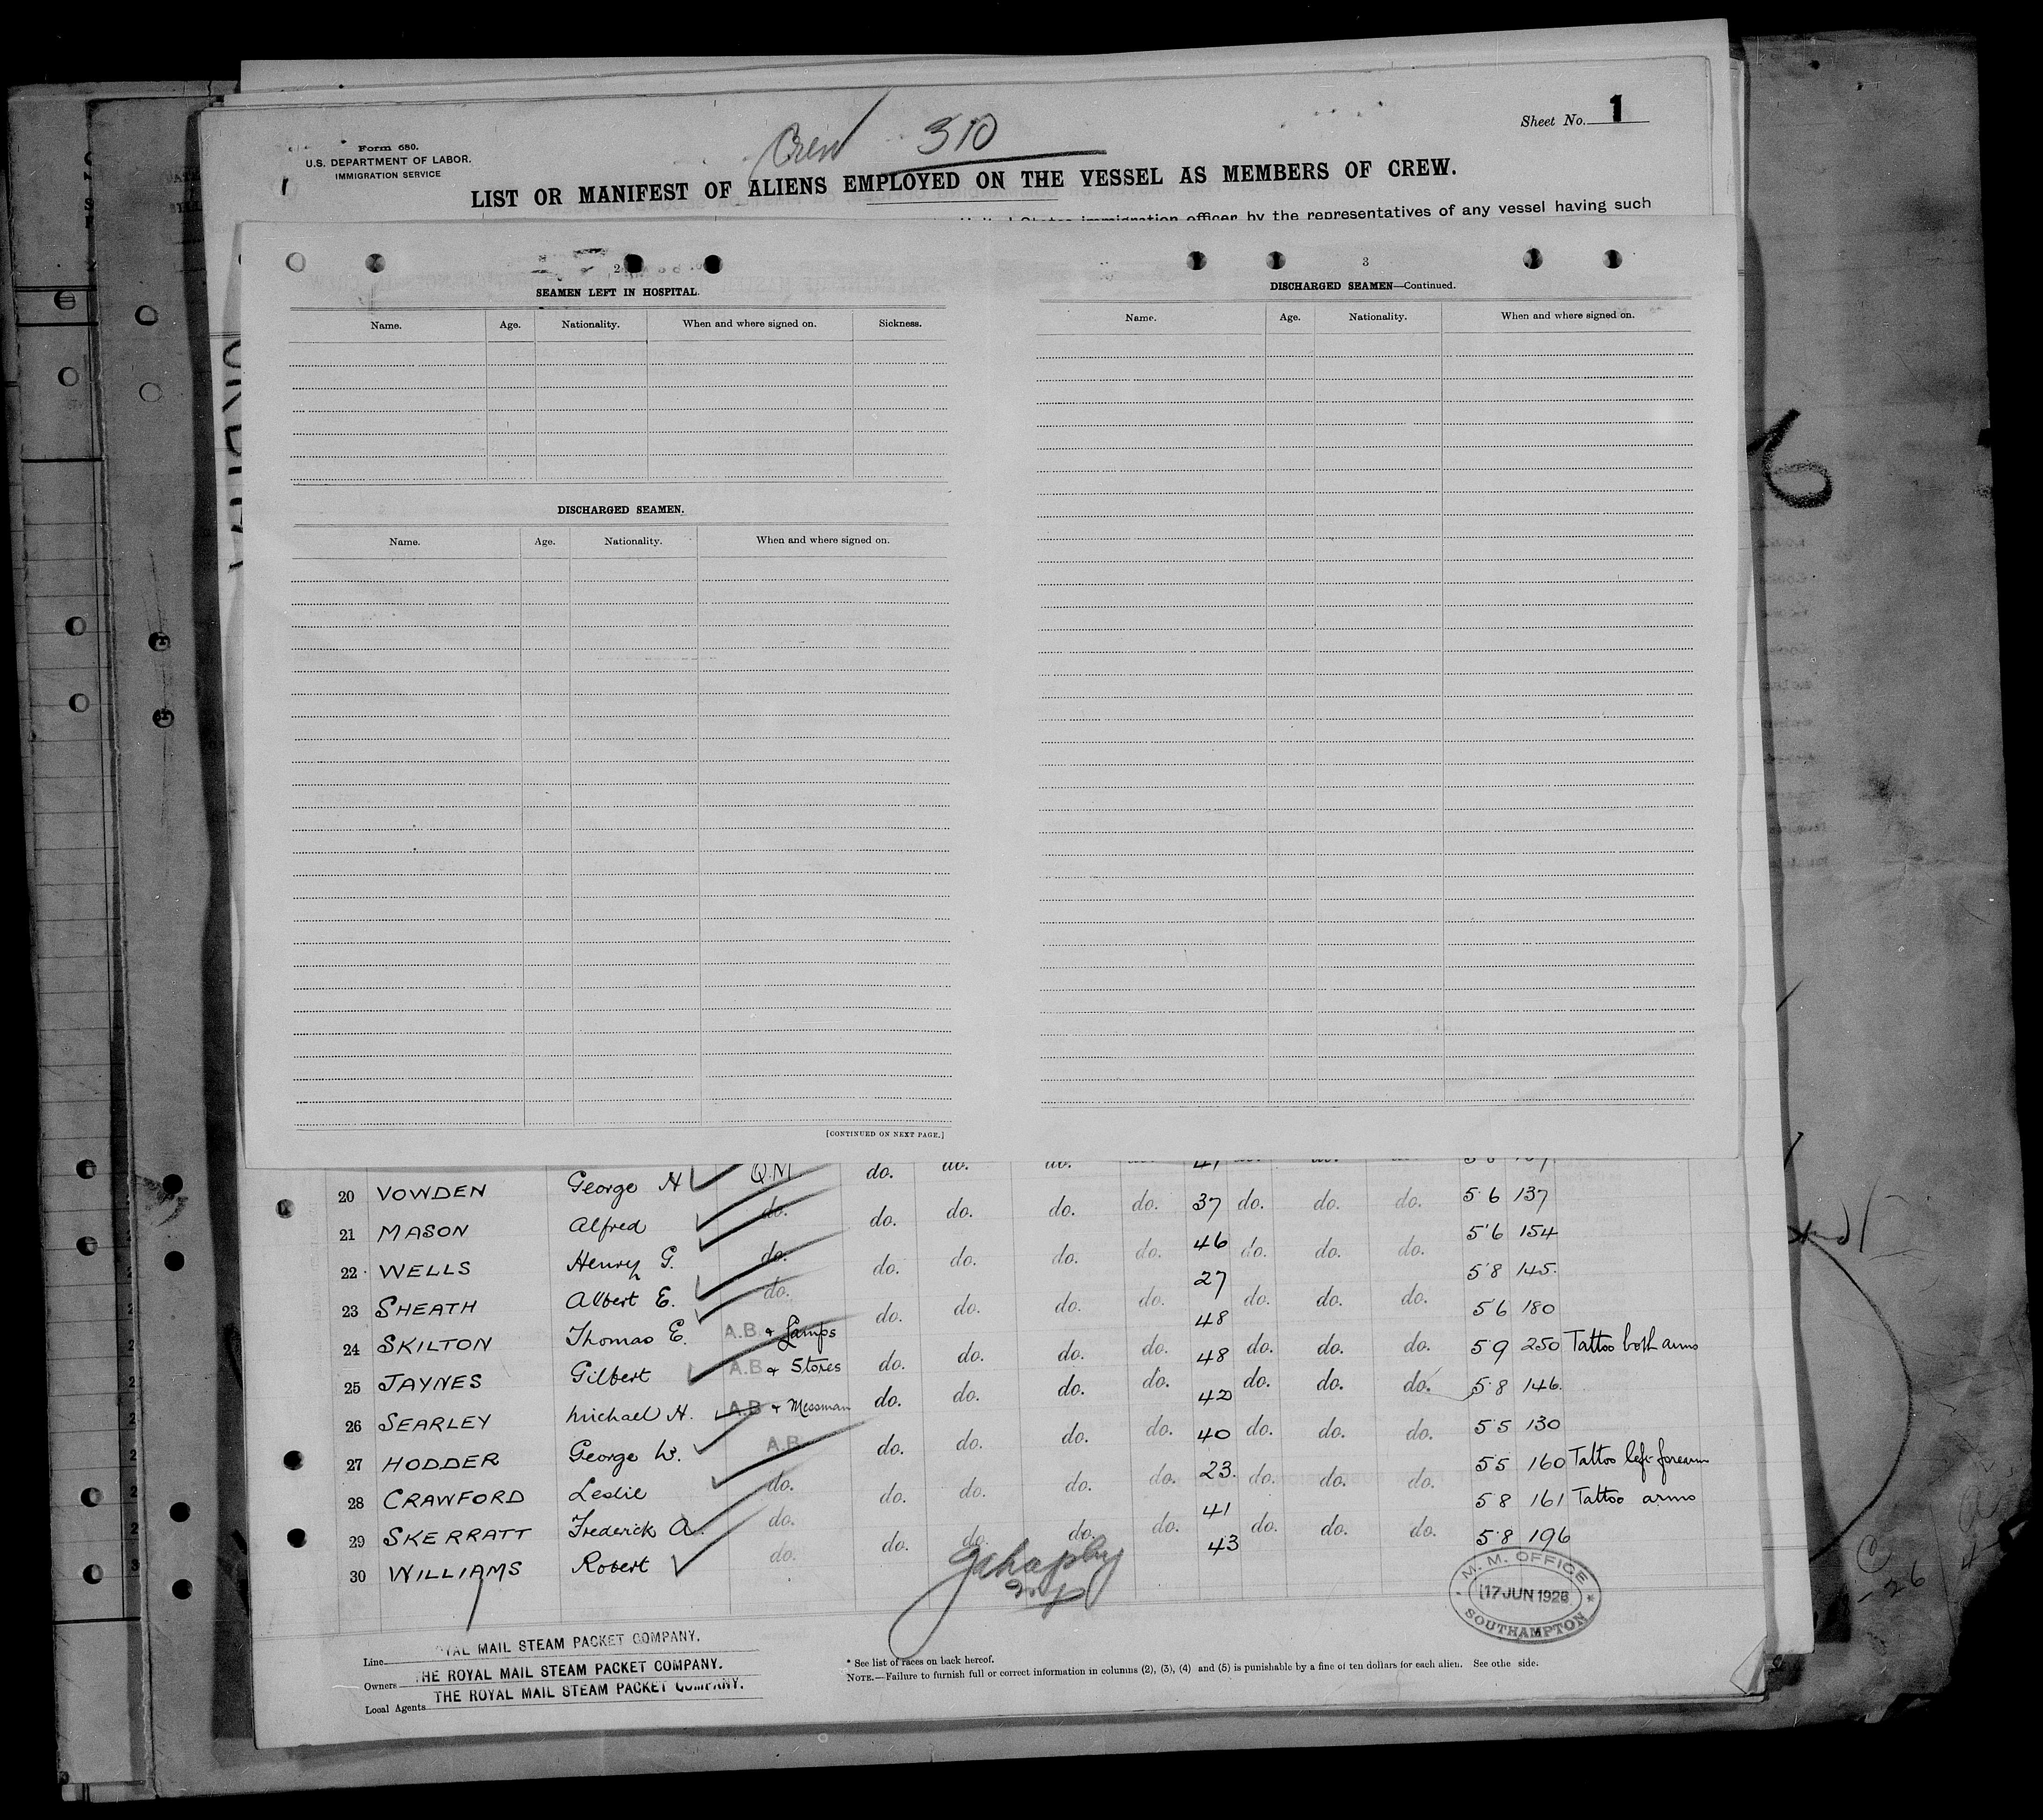 Crew 310
Sheet No. 1
Form 680.
U.S. DEPARTMENT OF LABOR.
IMMIGRATION SERVICE
1
LIST OR MANIFEST OF ALIENS EMPLOYED ON THE VESSEL AS MEMBERS OF CREW.
United States immigration officer by the representatives of any vessel having such
2
SEAMEN LEFT IN HOSPITAL.
Name. Age. Nationality. When and where signed on. Sickness.
DISCHARGED SEAMEN.
Name. Age. Nationality. When and where signed on.
[CONTINUED ON NEXT PAGE.]
3
DISCHARGED SEAMEN—Continued.
Name. Age. Nationality. When and where signed on.
6
20 VOWDEN George H Q.M do. do. do. 41
21 MASON Alfred do. do. do. do. do. 37 do. do. do. 5 6 137
22 WELLS Henry G. do. do. do. do. do. 46 do. do. do. 5'6 154
23 SHEATH Albert E. do. do. do. do. do. 27 do. do. do. 5'8 145.
24 SKILTON Thomas E. A.B & Lamps do. do. do. 48 5'6 180
25 JAYNES Gilbert A.B & Stores do. do. do. do. 48 do. do. do. 5 9 250 Tattoo both arms
26 SEARLEY Michael H. A.B & Messman do. do. do. do. 42 do. do. do. 5 8 146.
27 HODDER George W. A.B. do. do. do. do. 40 do. do. do. 5 5 130
28 CRAWFORD Leslie do. do. do. do. do. 23. do. do. do. 5 5 160 Tattoo left forearm
29 SKERRATT Frederick A. do. do. do. do. do. 41 do. do. do. 5 8 161 Tattoo arms
30 WILLIAMS Robert do. 43 5'8 196
M. M. OFFICE
17 JUN 1926
SOUTHAMPTON
Line YAL MAIL STEAM PACKET COMPANY.
Owners THE ROYAL MAIL STEAM PACKET COMPANY.
Local Agents THE ROYAL MAIL STEAM PACKET COMPANY.
* See list of races on back hereof.
NOTE.—Failure to furnish full or correct information in columns (2), (3), (4) and (5) is punishable by a fine of ten dollars for each alien. See othe side.